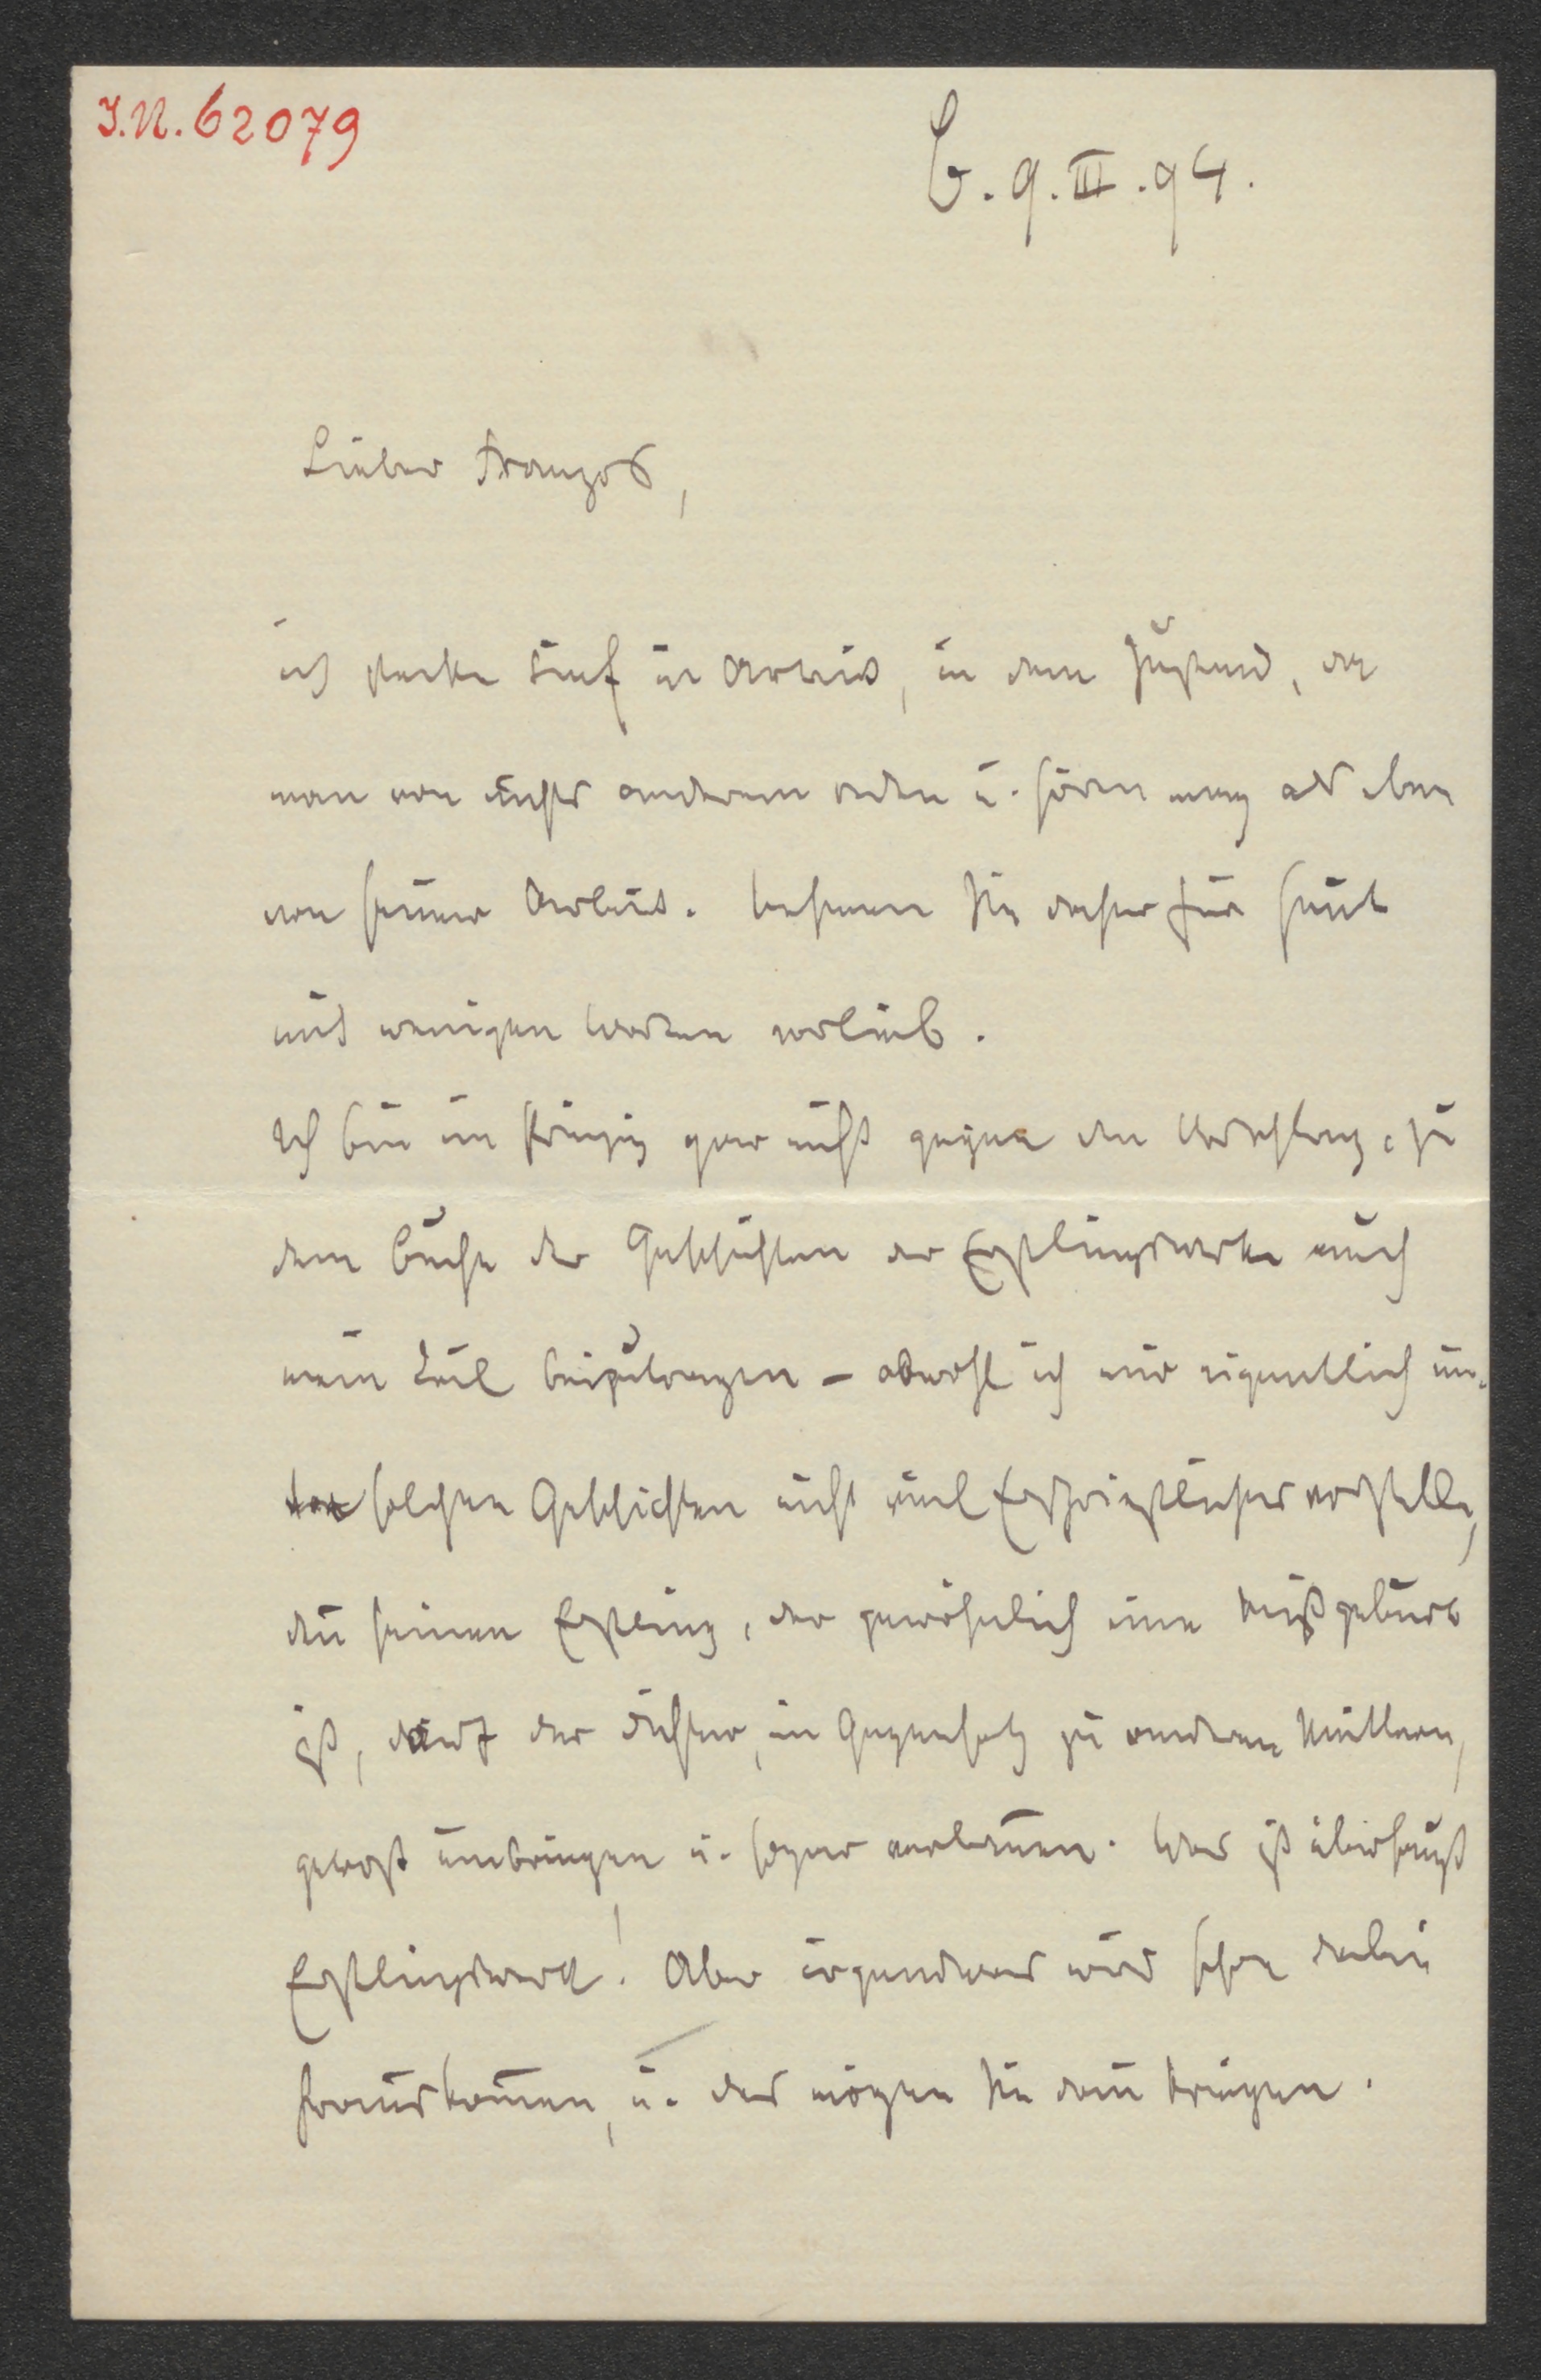 I.N. 62079
B. 9. III. 94.
Lieber Franzos,
ich stecke tief in Arbeit, in dem Zustand, da
man von nichts anderem reden u. hören mag als eben
von seiner Arbeit. Nehmen Sie daher für heut
mit wenigen Worten vorlieb.
Ich bin im Prinzip gar nicht gegen den Vorschlag, zu
dem Buche der Geschichten der Erstlingswerke auch
mein Teil beizutragen – obwohl ich mir eigentlich un-
ter solchen Geschichten nicht viel Ersprießliches vorstelle,
denn seinen Erstling, der gewöhnlich eine Mißgeburt
ist, darf der Dichter, im Gegensatz zu anderen Müttern,
getrost umbringen u. sogar verleugnen. Was ist überhaupt
Erstlingswerk! Aber irgendwas wird schon dabei
herauskommen, u. das mögen Sie dann kriegen.